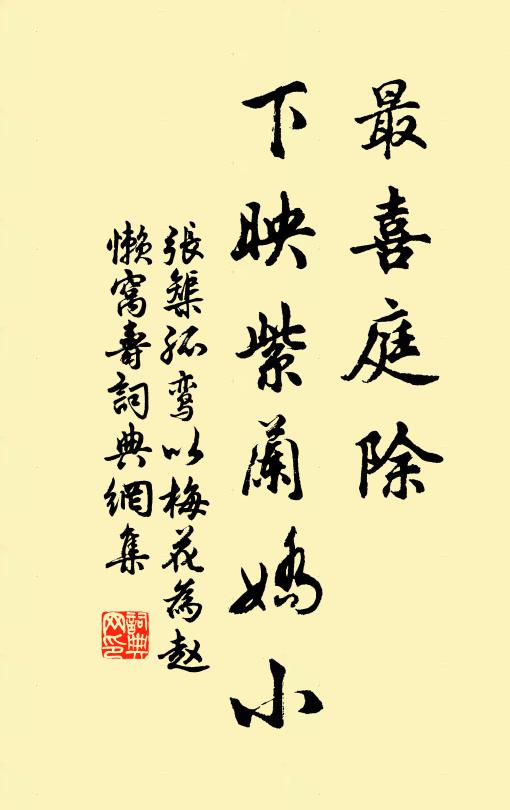 最喜庭除
下映紫蘭嬌小
張榘孤鸾以梅花為赵
懒窝壽詞典網集
詞典
网印